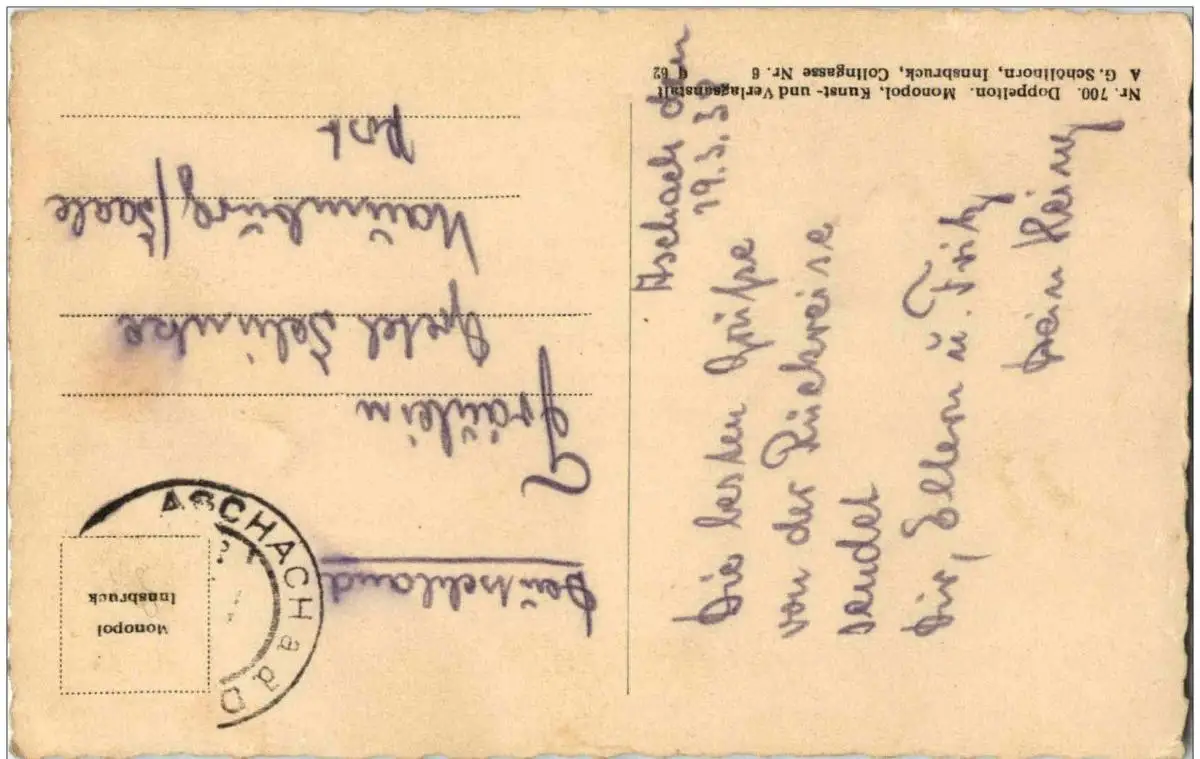 Nr. 700. Doppelton. Monopol, Kunst- und Verlagsanstalt
A G. Schöllhorn, Innsbruck, Colingasse Nr. 6 62
Aschach den
Die besten Grüße
von der Rückreise
sendet
Dir, Eltern u. Fritz
Dein Heinz
Monopol
Innsbruck
ASCHACH a d D
Deutschland
Fräulein
Gretel
Naumburg/Saale
Post